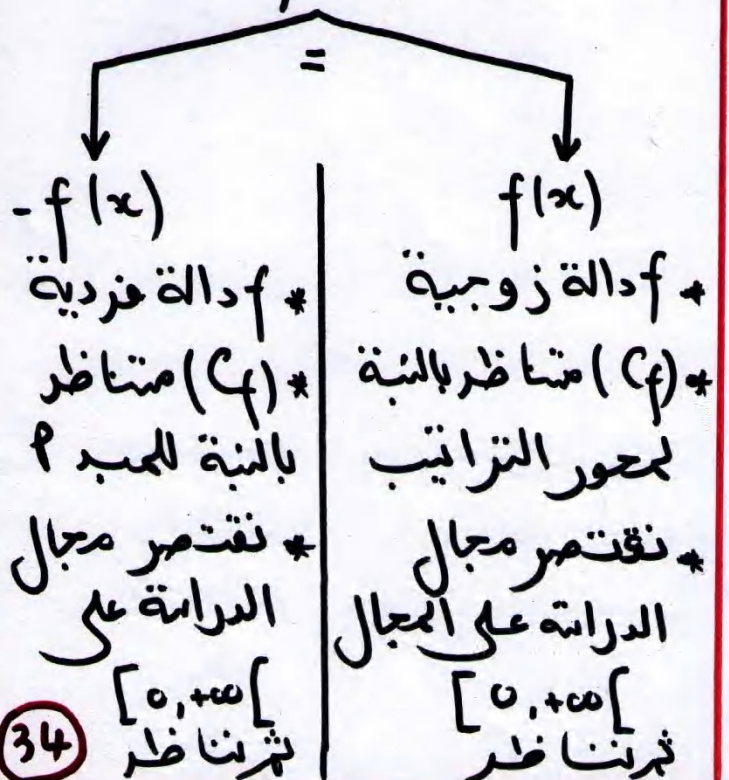 =
f(x)
* f دالة زوجية
* (Cf) متناظر بالنسبة
لمحور التراتيب
* نقتصر مجال
الدراسة على المجال
[0,+∞[
ثم نناظر
-f(x)
* f دالة فردية
* (Cf) متناظر
بالنسبة للمبدأ
* نقتصر مجال
الدراسة على
[0,+∞[
ثم نناظر
34